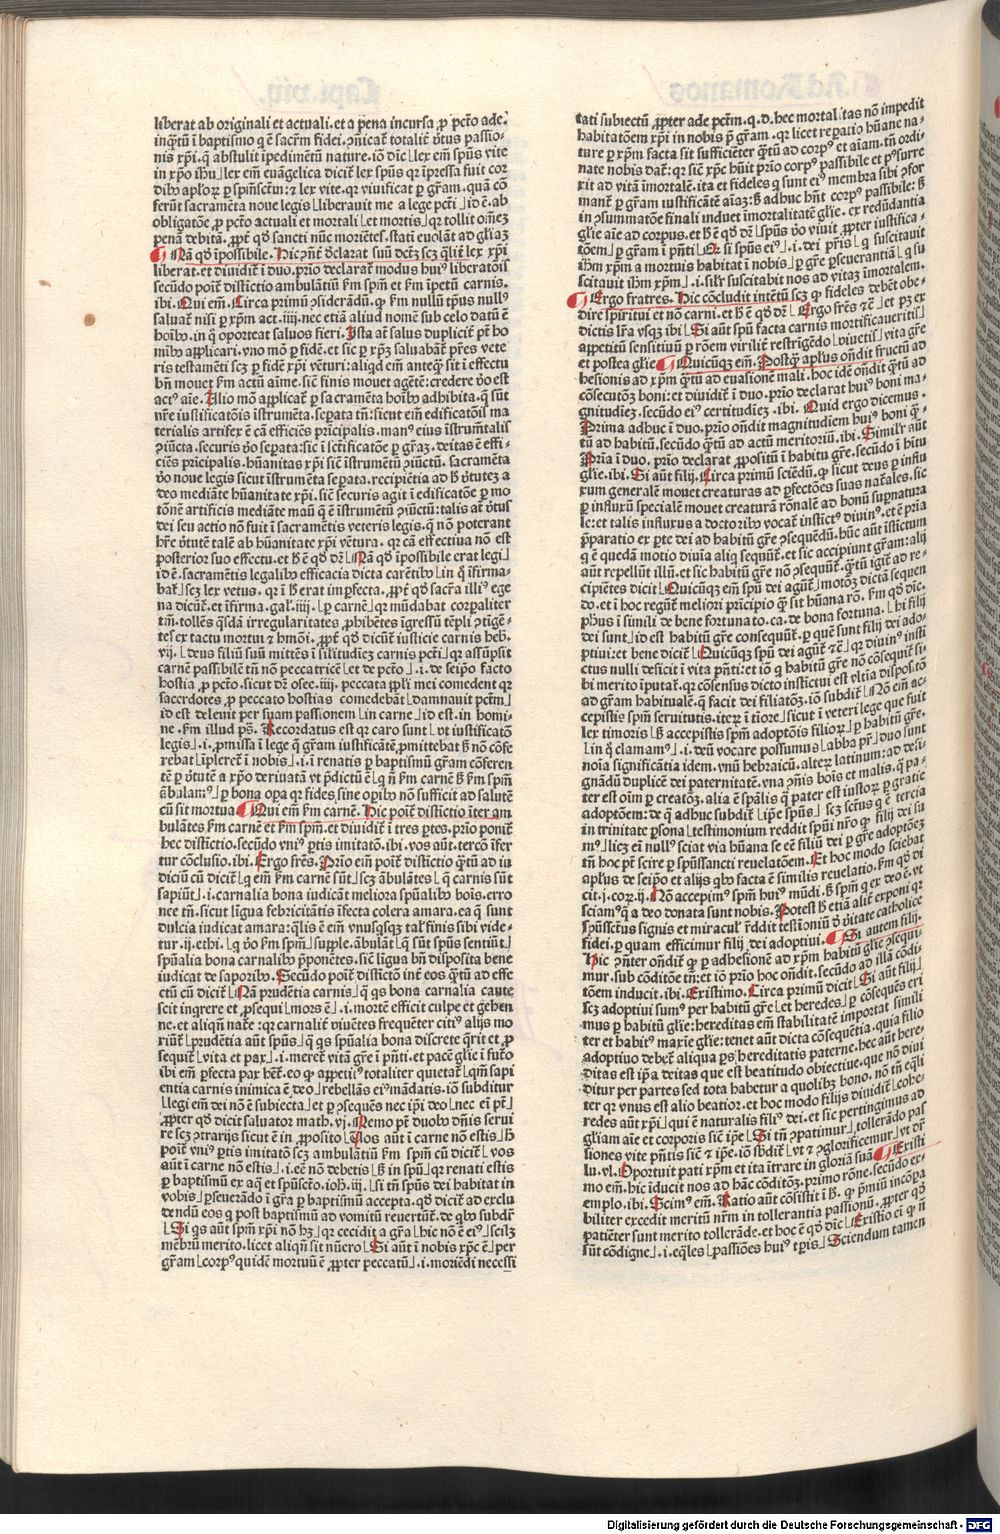 liberat ab originali et actuali. et a pena incursa ꝓ pctō ade.
inq̄tū ī baptismo q̄ ē sacrm̄ fidei. ꝯīcat̄ totalit̄ ꝟtus passio-
nis xp̄i. q̄ abstulit īpedimētū nature. iō dic̄ ⌊lex em̄ spūs vite
in xp̄o ihū⌋ lex em̄ euāgelica dicit̄ lex spūs qꝛ īpressa fuit cor
dibꝰ aplōꝝ ꝑ spm̄sctm̄: ⁊ lex vite. qꝛ viuificat ꝑ gr̄am. quā cō
ferūt sacramēta noue legis ⌊liberauit me a lege pcti⌋ id ē. ab
obligatōe ꝓ pctō actuali et mortali ⌊et mortis⌋ qꝛ tollit om̄eꝫ
penā debitā. ꝓpt̄ qd̄ sancti nūc moriētes. stati euolāt ad gl̄iaꝫ
¶ Nā qd̄ īpossibile. Hic ꝯn̄t declarat suū dctm̄ scꝫ qlit̄ lex xp̄i
liberat. et diuidit̄ ī duo. prīo declarat̄ modus huiꝰ liberatōis
secūdo poit̄ distictio ambulātiū ẜm spm̄ et ẜm īpetū carnis.
ibi. Qui em̄. Circa primū ꝯsiderādū. ꝙ ẜm nullū tp̄us nullꝰ
saluat̄ nisi ꝑ xp̄m act. iiij. nec etiā aliud nomē sub celo datū ē
hoībꝰ. in q̄ oporteat saluos fieri. Ista at̄ salus duplicit̄ pt̄ ho
mibꝰ applicari. vno mō ꝑ fidē. et sic ꝑ xp̄ꝫ saluabāt̄ pr̄es vete
ris testamēti scꝫ ꝑ fidē xp̄i vēturi: aliqd em̄ anteq̄ sit ī effectu
bn̄ mouet ẜm actū aīme. sic̄ finis mouet agētē: credere vo est
actꝰ aīe. Alio mō applicat̄ ꝑ sacramēta hoībꝰ adhibita. q̄ sūt
nr̄e iustificatōis īstrumēta. sepata tn̄: sicut em̄ edificatōis ma
terialis artifex ē cā efficiēs prīcipalis. manꝰ eius īstrum̄talis
ꝯiūcta. securis vo separata: sic ī sctificatōe ꝑ gr̄aꝫ. deitas ē effi-
ciēs prīcipalis. hūanitas xp̄i sic̄ īstrumētū ꝯiūctū. sacramēta
vo noue legis sicut īstrumēta separata. recipiētia ad ħ ꝟtuteꝫ a
deo mediāte hūanitate xp̄i. sic̄ securis agit ī edificatōe ꝑ mo
tōnē artificis mediāte manū q̄ ē īstrumētū ꝯiūctū: talis at̄ ꝟtus
dei seu actio nō fuit ī sacramētis veteris legis. q̄ nō poterant
hr̄e ꝟtutē talē ab hūanitate xp̄i vētura. qꝛ cā effectiua nō est
posterior suo effectu. et ħ ē qd̄ dꝛ̄ ⌊Nā qd̄ īpossibile erat legi⌋
id ē. sacramētis legalibꝰ efficacia dicta carētibꝰ ⌊in q̄ īfirma-
bat̄⌋ scꝫ lex vetus. qꝛ ī ħ erat imꝑfecta. ꝓpt̄ qd̄ sacra illiꝰ ege
na dicūt̄. et īfirma. gal. iiij. ⌊ꝑ carnē⌋ qꝛ mūdabat corꝑaliter
tm̄. tolles q̄sdā irregularitates ꝓhibētes īgressū tēpli ꝯtigē-
tes ex tactu mortui ⁊ hmōi. ꝓpt̄ qd̄ dicūt̄ iusticie carnis heb.
vij. ⌊deus filiū suū mittēs ī silitudiēꝫ carnis pcti⌋ qꝛ assūpsit
carnē passibilē tn̄ nō peccatricē ⌊et de pctō⌋ .i. de seip̄o facto
hostia ꝓ pctō. sicut dꝛ̄ osee. iiij. peccata ppl̄i mei comedent qꝛ
sacerdotes ꝓ peccato hostias comedebāt ⌊damnauit pctm̄⌋
id est deleuit per suam passionem ⌊in carne⌋ id est. in homi-
ne. ẜm illud pṡ. Recordatus est qꝛ caro sunt ⌊vt iustificatō
legis⌋ .i. ꝓmissa ī lege q̄ gr̄am iustificātē ꝓmittebat ħ nō cōfe
rebat ⌊īpleret̄ ī nobis⌋ .i. ī renatis ꝑ baptismū gr̄am cōferen
tē ꝑ ꝟtutē a xp̄o deriuatā vt p̄dictū ē ⌊q n̄ ẜm carnē ħ ẜm spm̄
ābulamꝰ⌋ ꝑ bona oꝑa qꝛ fides sine oꝑibꝰ nō sufficit ad salutē
cū sit mortua ¶ Qui em̄ ẜm carnē. Hic poit̄ distictio iter am
bulātes ẜm carnē et ẜm spm̄. et diuidit̄ ī tres ꝑtes. prīo ponit̄
hec distictio. secūdo vniꝰ ꝑtis imitatō. ibi. vos aūt. tercō īfer
tur cōclusio. ibi. Ergo frēs. Prīo em̄ poit̄ distictio q̄tū ad iu
diciū cū dicit̄ ⌊q em̄ ẜm carnē sūt⌋ scꝫ ābulātes ⌊q̄ carnis sūt
sapiūt⌋ .i. carnalia bona iudicāt meliora spūalibꝰ bois. erro
nee tn̄. sicut līgua febricitātis īfecta colera amara. ea q̄ sunt
dulcia iudicat amara: q̄lis ē em̄ vnusqsqꝫ tal̄ finis sibi vide-
tur .ij. ethi. ⌊q vo ẜm spm̄⌋ supple. ābulāt ⌊q̄ sūt spūs sentiūt⌋
spūalia bona carnalibꝰ p̄ponētes. sic̄ ligua bn̄ disposita bene
iudicat de saporibꝰ. Secūdo poit̄ distictō int̄ eos q̄tū ad effe
ctū cū dicit̄ ⌊Nā prudētia carnis⌋ q̄ qs bona carnalia caute
scit inqrere et ꝓsequi ⌊mors ē⌋ .i. mortē efficit culpe et gehen
ne. et aliqn̄ nat̄e: qꝛ carnalit̄ viuētes frequēter citiꝰ alijs mo
riūt̄ ⌊prudētia aūt spūs⌋ q̄ qs spūalia bona discrete q̄rit et ꝓ
sequit̄ ⌊vita et pax⌋ .i. meret̄ vitā gr̄e ī pn̄ti. et pacē gl̄ie ī futo
ibi em̄ ꝑfecta pax hēt̄. eo ꝙ appetitꝰ totaliter quietat̄ ⌊qm̄ sapi
entia carnis inimica ē deo⌋ rebellās eiꝰ mādatis. iō subditur
⌊legi em̄ dei nō ē subiecta⌋ et ꝑ ꝯsequēs nec ip̄i deo ⌊nec em̄ pt̄⌋
ꝓpter qd̄ dicit saluator math. vj. Nemo pt̄ duobꝰ dn̄is serui
re scꝫ ꝯtrarijs sicut ē in ꝓposito ⌊Uos aūt ī carne nō estis⌋ ħ
poit̄ vniꝰ ꝑtis imitatō scꝫ ambulātiū ẜm spm̄ cū dicit̄ ⌊vos
aūt ī carne nō estis⌋ .i. ee nō debetis ⌊ħ in spū⌋ qꝛ renati estis
ꝑ baptismū ex aq̄ et spūsctō. ioh. iij. ⌊si tn̄ spūs dei habitat in
vobis⌋ ꝑseuerādo ī gr̄a ꝑ baptismū accepta. qd̄ dicit̄ ad exclu
dendū eos q post baptismū ad vomitū reuertūt̄. de qbꝰ subdr̄
⌊Si qs aūt spm̄ xp̄i nō hꝫ⌋ qꝛ cecidit a gr̄a ⌊hic nō ē eiꝰ⌋ scilꝫ
mēbrū merito. licet aliqn̄ sit nūero ⌊Si aūt ī nobis xpc̄ ē⌋ per
gr̄am ⌊corpꝰ quidē mortuū ē ꝓpter peccatū⌋ .i. moriēdi necessi
tati subiectū ꝓpter ade pctm̄. q. d. hec mortalitas nō impedit
habitatōem xp̄i in nobis ꝑ gr̄am. qꝛ licet reꝑatio hūane na-
ture ꝑ xp̄m facta sit sufficiēter q̄tū ad corpꝰ et aīam. tn̄ ordi-
nate nobis dat̄: qꝛ sic̄ xpc̄ hūit prīo corpꝰ passibile et pꝰ surre
xit ad vitā imortalē. ita et fideles q sunt eiꝰ membra sibi ꝯfor
mant̄ ꝑ gr̄am iustificātē aīaꝫ: ħ adhuc hn̄t corpꝰ passibile: ħ
in ꝯsummatōe finali induet imortalitatē gl̄ie. ex redūdantia
glie aīe ad corpus. et ħ ē qd̄ dꝛ̄ ⌊spūs vo viuit ꝓpter iustifica-
tōem⌋ ꝑ gr̄am ī pn̄ti ⌊Qꝛ si spūs eiꝰ⌋ .i. dei pr̄is ⌊q suscitauit
ihm xp̄m a mortuis habitat ī nobis⌋ ꝑ gr̄e ꝑseuerantiā ⌊q su
scitauit ihm xp̄m⌋ .i. silr̄ suscitabit nos ad vitaꝫ imortalem.
¶ Ergo fratres. Hic cōcludit intētū scꝫ ꝙ fideles debēt obe-
dire spiritui et nō carni. et ħ ē qd̄ dꝛ̄ ⌊Ergo frēs ⁊c̄⌋ et pꝫ ex
dictis lr̄a vsqꝫ ibi ⌊Si aūt spū facta carnis mortificaueritis⌋
appetitū sensitiuū ꝑ rōem virilit̄ restrīgēdo ⌊viuetis⌋ vita gr̄e
et postea glie ¶ Quicūqꝫ em̄. Postq̄ aplus on̄dit fructū ad
hesionis ad xp̄m q̄tū ad euasionē mali. hoc idē on̄dit q̄tū ad
cōsecutōꝫ boni: et diuidit̄ ī duo. prīo declarat huiꝰ boni ma-
gnitudiēꝫ. secūdo eiꝰ certitudiēꝫ. ibi. Quid ergo dicemus.
Prima adhuc ī duo. prīo on̄dit magnitudiem huiꝰ boni q̄-
tū ad habitū. secūdo q̄tū ad actū meritoriū. ibi. Similr̄ aūt
Prīa ī duo. prīo declarat ꝓpositū ī habitu gr̄e. secūdo ī hītu
glie. ibi. Si aūt filij. Circa primū sciēdū. ꝙ sicut deus ꝑ influ
xum generalē mouet creaturas ad ꝑfectōes suas nat̄ales. sic
ꝑ influxū specialē mouet creaturā rōnalē ad bonū supnatura
le: et talis influxus a doctoribꝰ vocat̄ instictꝰ diuinꝰ. et ē pria
p̄paratio ex ꝑte dei ad habitū gr̄e ꝯsequēdū. hūc aūt īstictum
q ē quedā motio diuīa aliq sequūt̄. et sic accipiunt gr̄am: alij
aūt repellūt illū. et sic habitū gr̄e nō ꝯsequūt̄. q̄tū igit̄ ad re-
cipiētes dicit̄ ⌊Quicūqꝫ em̄ spū dei agūt̄⌋ motōꝫ dictā sequen
do. et ī hoc regūt̄ meliori prīcipio q̄ sit hūana rō. ẜm qd̄ dic̄.
phus ī simili de bene fortunato. ca. de bona fortuna. ⌊hi filij
dei sunt⌋ id est habitū gr̄e consequūt̄. ꝑ quē sunt filij dei ado-
ptiui: et bene dicit̄ ⌊Quicūqꝫ spū dei agūt̄ ⁊c̄⌋ qꝛ diuinꝰ insti
ctus nulli deficit ī vita pn̄ti: et iō q habitū gr̄e nō cōsequit̄ si-
bi merito īputat̄. qꝛ cōsensus dicto instictui est vltīa disposꝰtō
ad gr̄am habitualē. q̄ facit dei filiatōꝫ. iō subdit̄ ⌊Nō em̄ ac-
cepistis spm̄ seruitutis. iterꝫ ī tiōre⌋ sicut ī veteri lege que fuit
lex timoris ⌊ħ accepistis spm̄ adoptōis filioꝝ⌋ ꝑ habitū gr̄e.
⌊in q̄ clamamꝰ⌋ .i. deū vocare possumus ⌊abba pr̄⌋ duo sunt
noīa significātia idem. vnū hebraicū. alteꝝ latinum: ad desi-
gnādū duplicē dei paternitatē. vna ꝯn̄is bōis et malis. q̄ pa-
ter est oīm ꝑ creatōꝫ. alia ē spālis q̄ pater est iustoꝝ ꝑ gratie
adoptōem: de q̄ adhuc subdit̄ ⌊ip̄e spūs⌋ scꝫ sctūs q̄ ē tercia
in trinitate ꝑsona ⌊testimonium reddit spūi nr̄o ꝙ filij dei su
mꝰ⌋ licꝫ em̄ nullꝰ sciat via hūana se eē filiū dei ꝑ gr̄e adoptōeꝫ
tn̄ hoc pt̄ scire ꝑ spūssancti reuelatōem. Et hoc modo sciebat
apl̄us de seip̄o et alijs qbꝰ facta ē similis reuelatio. ẜm qd̄ di
cit .j. coꝝ. ij. Nō accepimꝰ spm̄ huiꝰ mūdi. ħ spm̄ q ex deo ē. vt
sciamꝰ q a deo donata sunt nobis. Potest ħ etiā alit̄ exponi qꝛ
spūsctūs signis et miracul' r̄ddit testiōniū ꝟ ꝟitate catholice
fidei. ꝑ quam efficimur filij dei adoptiui. ¶ Si autem filij.
Hic ꝯn̄ter on̄dit̄ ꝙ ꝑ adhesionē ad xp̄m habitū glie ꝯsequi-
mur. sub cōditōe tn̄: et iō prīo hoc on̄dit. secūdo ad illā cōdi
tōem inducit. ibi. Existimo. Circa primū dicit̄ ⌊Si aūt filij⌋
scꝫ adoptiui sumꝰ per habitū gr̄e ⌊et heredes⌋ ꝑ cōsequēs eri
mus ꝑ habitū glie: hereditas em̄ stabilitatē importat simili
ter et habitꝰ maxīe glie: tenet aūt dicta cōsequētia. quia filio
adoptiuo debet̄ aliqua ꝑs hereditatis paterne. hec aūt here-
ditas est ip̄a deitas que est beatitudo obiectiue. que nō diui
ditur per partes sed tota habetur a quolibꝫ bono. nō tn̄ eqli
ter qꝛ vnus est alio beatior. et hoc modo filijs diuidit̄ ⌊cohe-
redes aūt xp̄i⌋ qui ē naturalis filiꝰ dei. et sic pertingimus ad
gliam aīe et corporis sic̄ ip̄e ⌊Si tn̄ ꝯpatimur⌋ tollerādo pas
siones vite pn̄tis sic̄ ⁊ ip̄e. iō sbdit̄ ⌊vt ⁊ ꝯglorificemur⌋ vt dꝛ̄
lu. vl. Oportuit pati xp̄m et ita ītrare in gloriā suā ¶ Existi
mo em̄. hic īducit nos ad hāc cōditōꝫ. primo rōne. secūdo ex-
emplo. ibi. Scimꝰ em̄. Ratio aūt cōsistit ī ħ. ꝙ p̄miū incōpa
biliter excedit meritū nr̄m in tollerantia passionū. ꝓpter qd̄
patiēter sunt merito tollerāde. et hoc ē qd̄ dic̄ ⌊Existiō ei ꝙ n̄
sūt cōdigne⌋ .i. eq̄les ⌊passiōes huiꝰ tꝑis⌋ Sciendum tamen
Digitalisierung gefördert durch die Deutsche Forschungsgemeinschaft - DFG